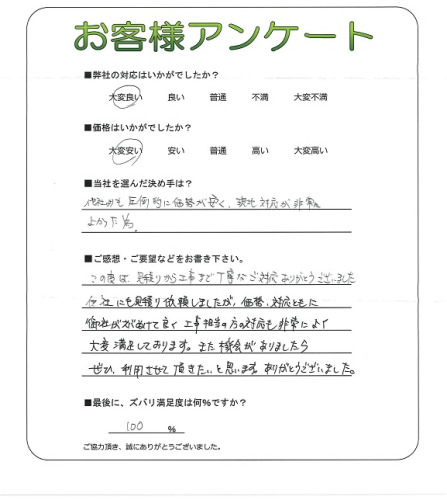 お客様アンケート
■弊社の対応はいかがでしたか?
大変良い 良い 普通 不満 大変不満
■価格はいかがでしたか?
大変安い 安い 普通 高い 大変高い
■当社を選んだ決め手は?
他社よりも圧倒的に価格が安く、対応が非常に
よかった為。
■ご感想・ご要望などをお書き下さい。
この度は、見積りから工事まで丁寧なご対応ありがとうございました
他社にも見積り依頼しましたが、価格、対応ともに
御社がずばぬけて良く工事担当の方の対応も非常によく
大変満足しております。また機会がありましたら
ぜひ、利用させて頂きたいと思います。ありがとうございました。
■最後に、ズバリ満足度は何%ですか?
100 %
ご協力頂き、誠にありがとうございました。